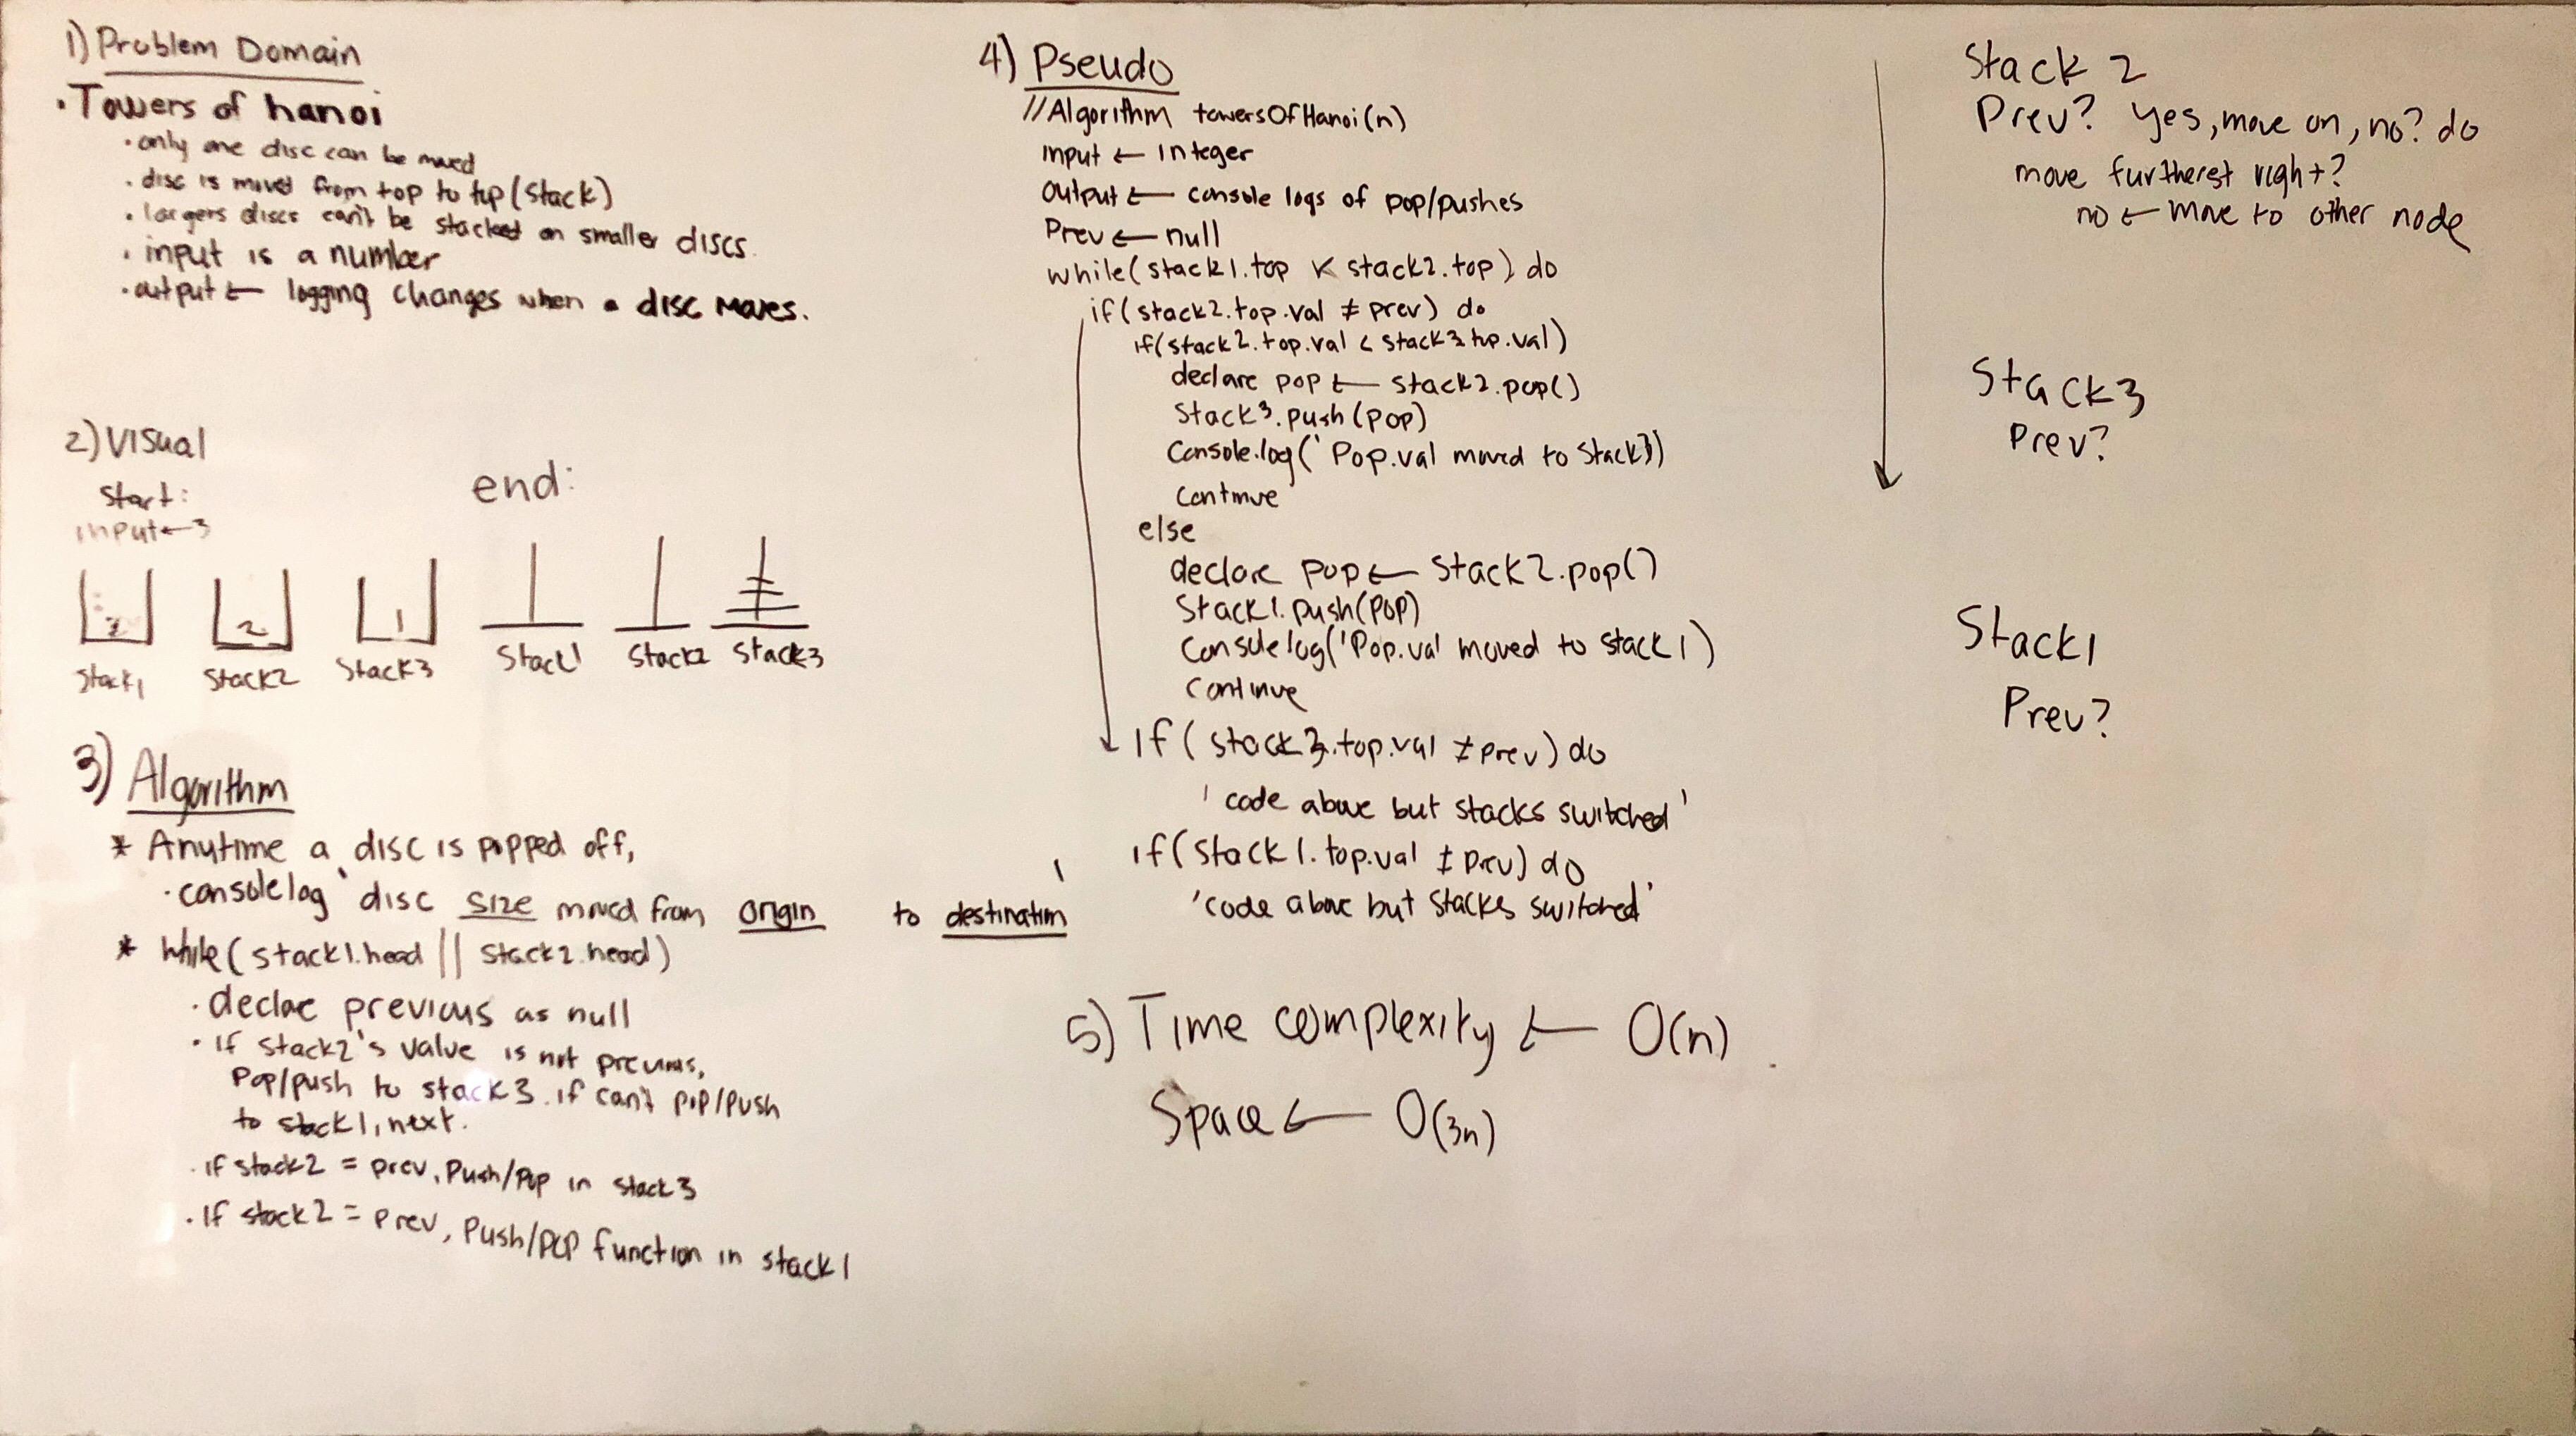 1) Problem Domain
• Towers of hanoi
• only one disc can be moved
• disc is moved from top to top (stack)
• largers discs can't be stacked on smaller discs.
• input is a number
• output ← logging changes when a disc moves.
2) Visual
Start:
input ← 3
end:
2
2
1
Stack1
Stack2
Stack3
Stack1
Stack2
Stack3
3) Algorithm
* Anytime a disc is popped off,
• console log ' disc size moved from origin to destination '
* while (stack1.head || stack2.head)
• declae previous as null
• if stack2's value is not previous,
Pop/push to stack3. if can't pop/push
to stack1, next.
• if stack2 = prev, Push/Pop in stack3
• If stack2 = prev, Push/pop function in stack1
4) Pseudo
//Algorithm towersOfHanoi(n)
input ← integer
output ← console logs of pop/pushes
Prev ← null
while(stack1.top < stack2.top) do
if(stack2.top.val ≠ prev) do
if(stack2.top.val < stack3 top.val)
declare pop ← stack2.pop()
Stack3.push(pop)
Console.log(' Pop.val moved to Stack3)
Continue
else
declare pop ← Stack2.pop()
Stack1.push(pop)
Console log('Pop.val moved to stack1)
Continue
if(stack3.top.val ≠ prev) do
'code above but stacks switched'
if(Stack1.top.val ≠ prev) do
'code above but stacks switched'
5) Time complexity ← O(n)
Space ← O(3n)
Stack 2
Prev? yes, move on, no? do
move furtherest right?
no ← move to other node
Stack3
Prev?
Stack1
Prev?